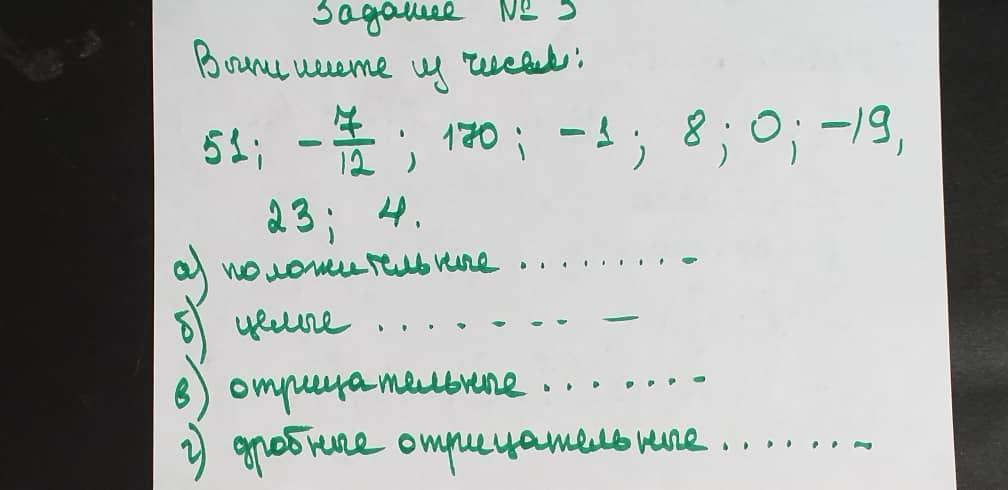 Задание № 3
Выпишите из чисел:
51; -7/12; 170; -1; 8; 0; -19,
23; 4.
а) положительные .........
б) целые ........ —
в) отрицательные ........
г) дробные отрицательные .......